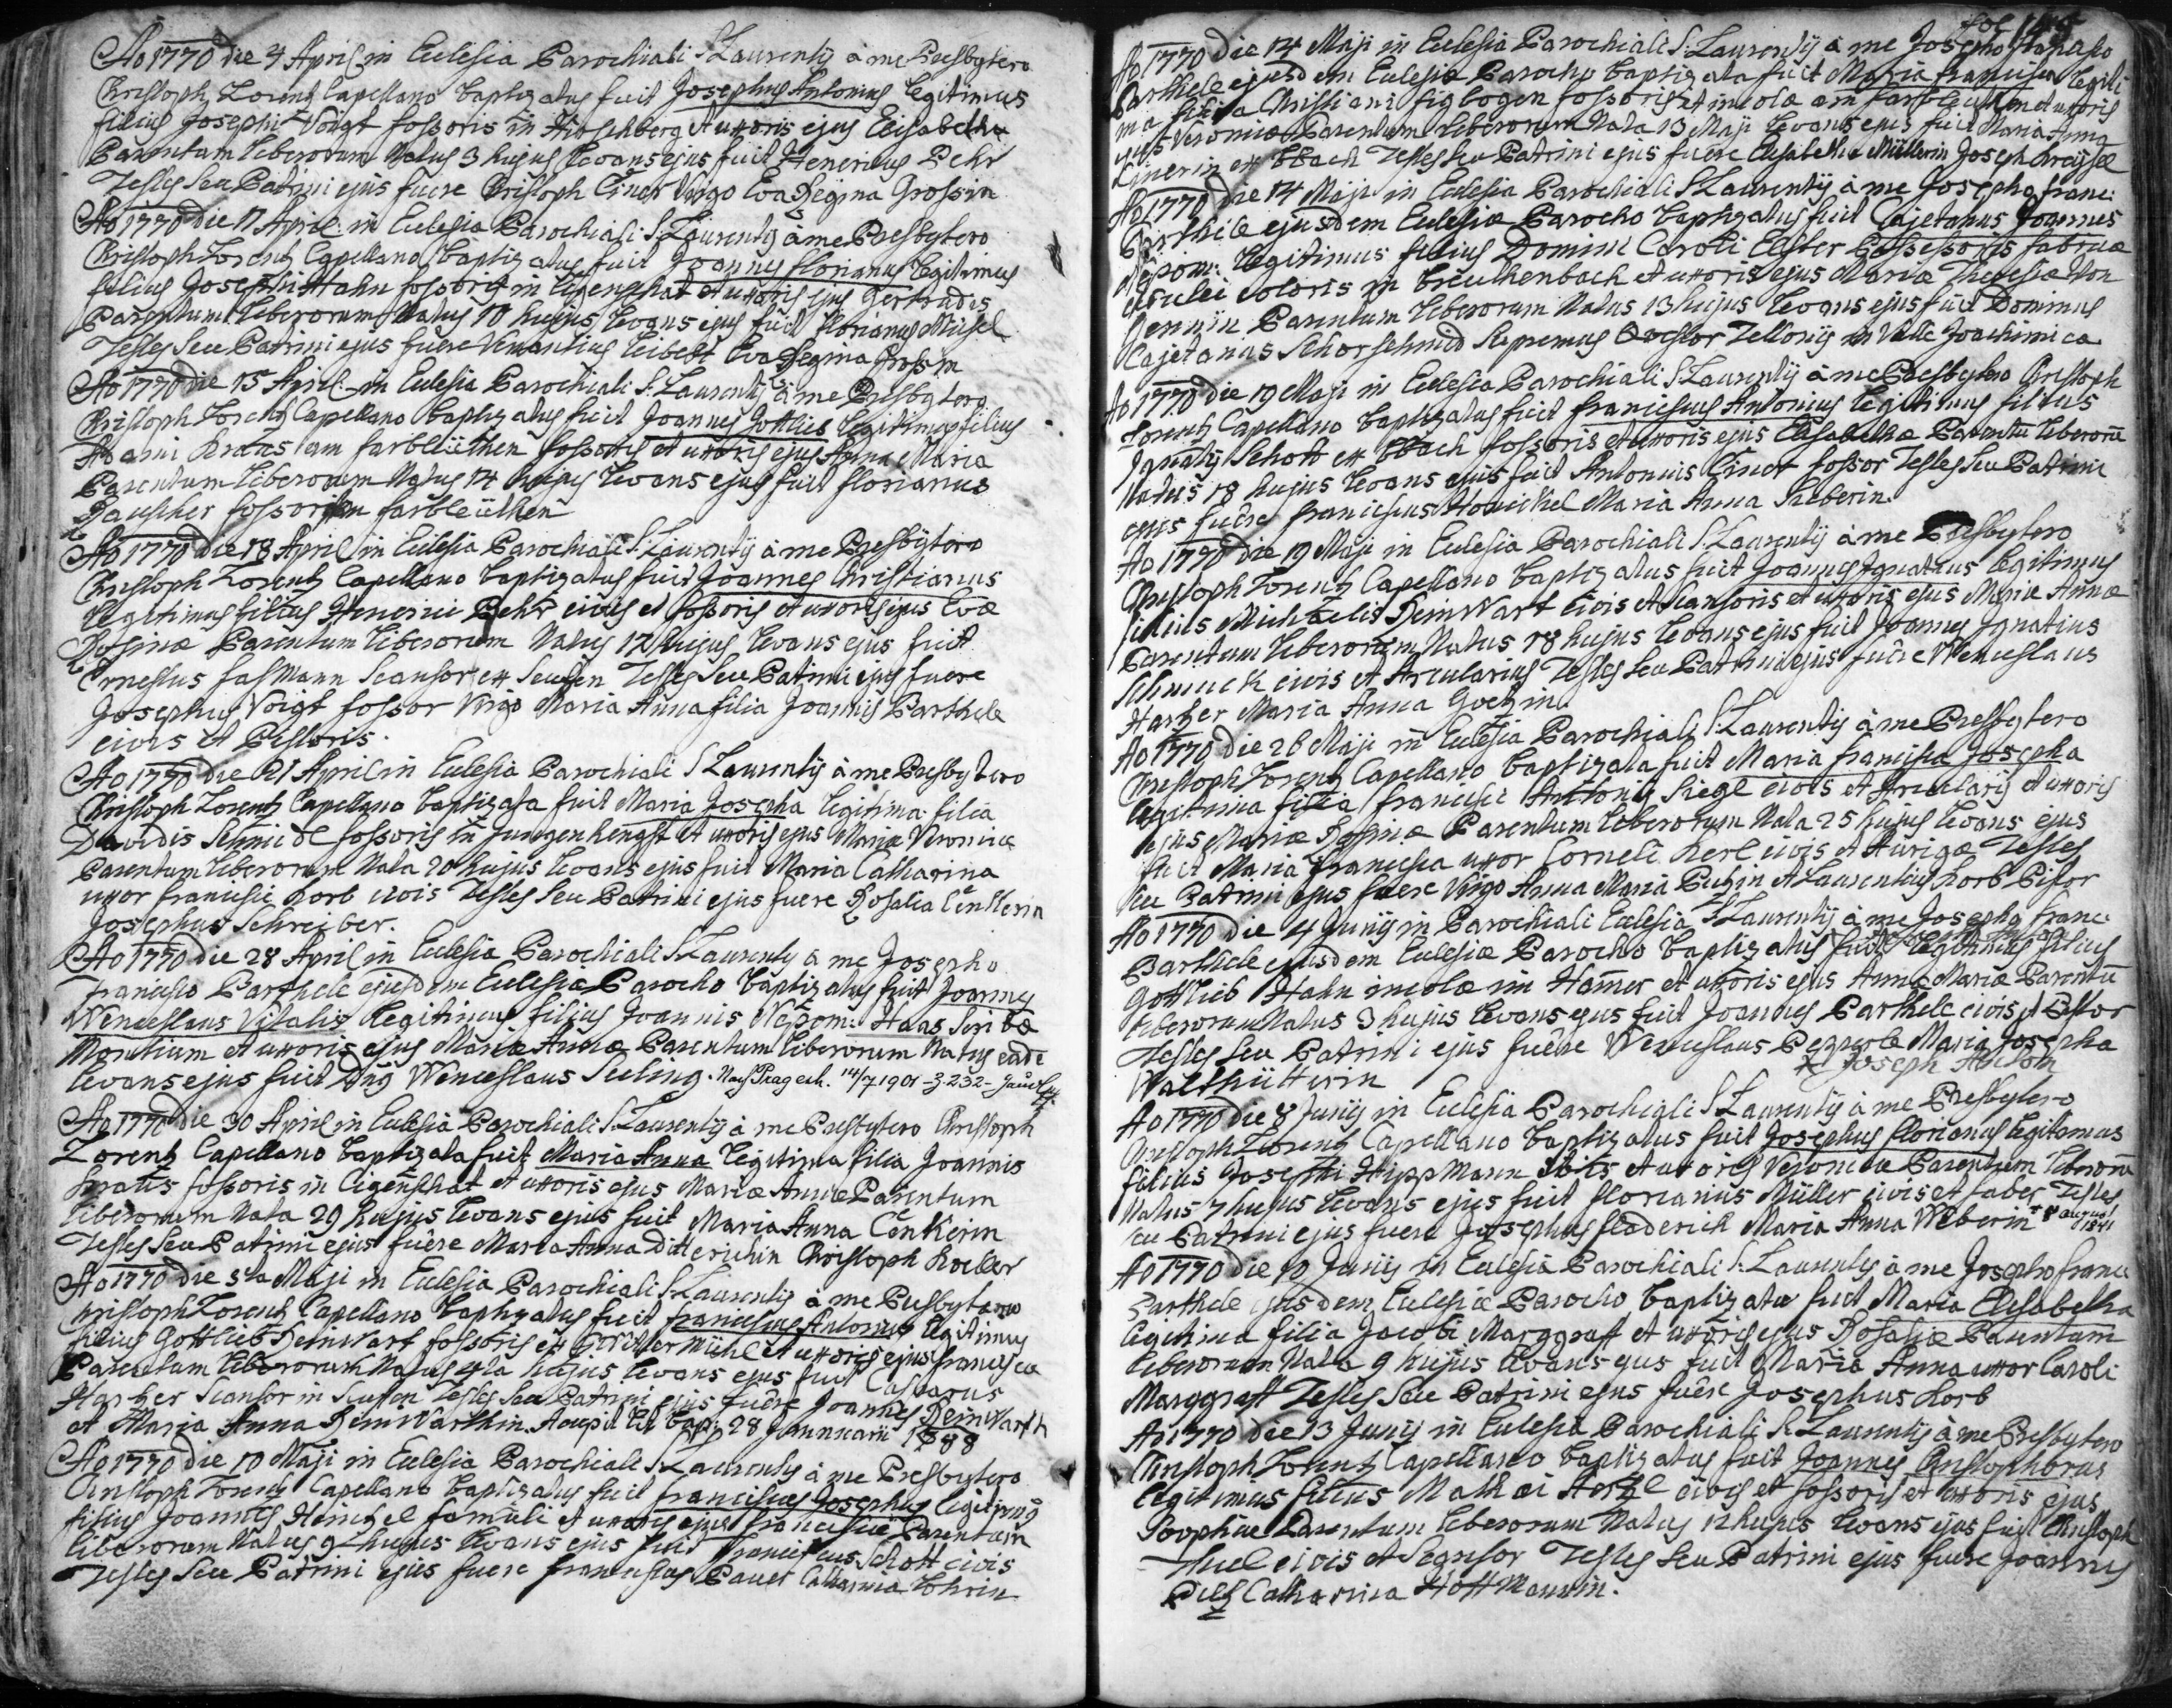 Ao 1770 die 4 April in Eclesia Parochiali S Laurentij à me Presbytero
Christoph Lorentz Capellano baptizatus fuit Josephus Antonius legitimus
filius Josephi Voigt fossoris in Hirschberg et uxoris ejus Elisabetha
Parentum liberorum Natus 3 hujus levans ejus fuit Henericus Pehr
Testes seu Patrini ejus fuere Christoph Virgo Eva Regina Grossin
Ao 1770 die 11 April in Eclesia Parochiali S: Laurentij à me Presbytero
Christoph Lorentz Capellano baptizatus fuit Joannes florianus legitimus
filius Josephi Hahn fossoris in et uxoris ejus Gertrudis
Parentum liberorum Natus 10 hujus levans ejus fuit florianus
Testes seu Patrini ejus fuere Venantius Leibelt Eva Regina Grossin
Ao 1770 die 15 April in Eclesia Parochiali S: Laurentij à me Presbytero
Christoph Lorentz Capellano baptizatus fuit Joannes Gottlieb legitimus filius
Adami Kraus am farbleüthen fossoris et uxoris ejus Anna Maria
Parentum liberorum Natus 14 hujus levans ejus fuit florianus
fossor am farbleüthen
Ao 1770 die 18 April in Eclesia Parochiali S: Laurentij à me Presbytero
Christoph Lorentz Capellano baptizatus fuit Joannes Christianus
legitimus filius Henerici Pehr civis et fossoris et uxoris ejus Evæ
Rosinæ Parentum liberorum Natus 17 hujus levans ejus fuit
Ernestus fasmann Scansor ex Seuffen Testes seu Patrini ejus fuere
Josephus Voigt fossor Virgo Maria Anna filia Joannis Barthele
civis et Pistoris.
Ao 1770 die 21 April in Eclesia Parochiali S Laurentij à me Presbytero
Christoph Lorentz Capellano baptizata fuit Maria Josepha legitima filia
Davidis Schmiedl fossoris in Jungenhengst et uxoris ejus Mariæ Veronicæ
Parentum liberorum Nata 20 hujus levans ejus fuit Maria Catharina
uxor francisci Korb civis Testes seu Patrini ejus fuere Rosalia
Josephus Schreiber.
Ao 1770 die 28 April in Eclesia Parochiali S Laurenty à me Josepho
francisco Barthele ejusdem Eclesiæ Parocho baptizatus fuit Joannes
Wenceslaus Vitalis legitimus filius Joannis Nepom: Haas Scribæ
Montium et uxoris ejus Mariæ Annæ Parentum liberorum Natus eade
levans ejus fuit Dnũs Wenceslaus Seeling. Nach Prag 14/7 1901 - Z. 232 -
Ao 1770 die 30 April in Eclesia Parochiali S Laurentij à me Presbytero Christoph
Lorentz Capellano baptizata fuit Maria Anna legitima filia Joannis
Kraus fossoris in et uxoris ejus Mariæ Annæ Parentum
liberorum Nata 29 hujus levans ejus fuit Maria Anna
Testes seu Patrini ejus fuêre Maria Anna Ditterichin Christoph
Ao 1770 die 5ta Maji in Eclesia Parochiali S: Laurentij à me Presbytero
Christoph Lorentz Capellano baptizatus fuit franciscus Antonius legitimus
filius Gottlieb Reinwart fossoris ex et uxoris ejus franciscæ
Parentum liberorum Natus 4ta hujus levans ejus fuit Casparus
Scansor in Seuffen Testes seu Patrini ejus fuêre Joannes Reinwarth
et Maria Anna Reinwarthin. Accepit lit bap: 28 Januarii 1788
Ao 1770 die 10 Maji in Eclesia Parochiali S: Laurentij à me Presbytero
Christoph Lorentz Capellano baptizatus fuit franciscus Josephus legitimus
filius Joannes Heinzel famuli et uxoris ejus franciscæ Parentum
liberorum Natus 9 hujus levans ejus fuit franciscus Schott civis
Testes seu Patrini ejus fuere franciscus Bauer Catharina
fol
Ao 1770 die 14 Maji in Eclesia Parochiali S: Laurentij à me Josepho francisco
Barthele ejusdem Eclesiæ Parocho baptizata fuit Maria francisca legiti
ma filia Christiani fossoris et incolæ am farbleüthen et uxoris
ejus Veronicæ Parentum liberorum Nata 13 Maji levans ejus fuit Maria Anna
Testes seu Patrini ejus fuere Elisabetha Müllerin Joseph
Ao 1770 die 14 Maji in Eclesia Parochiali S Laurentij à me Josepho franc:
Barthele ejusdem Eclesiæ Parocho baptizatus fuit Cajetanus Joannes
Nepom: legitimus filius Domini Caroli Elster Possessoris fabricæ
coloris in breitenbach et uxoris ejus Mariæ Theresiæ Von
Parentum liberorum Natus 13 hujus levans ejus fuit Dominus
Cajetanus Schorschmid Supremus in Valle Joachimica
Ao 1770 die 19 Maji in Eclesia Parochiali S Laurentij à me Presbytero Christoph
Lorentz Capellano baptizatus fuit franciscus Antonius legitimus filius
Ignatij Schott fossoris et uxoris ejus Elisabethæ Parentũ liberorũ
Natus 18 hujus levans ejus fuit Antonius fossor Testes seu Patrini
ejus fuêre franciscus Maria Anna
Ao 1770 die 19 Maji in Eclesia Parochiali S: Laurentij à me Presbytero
Christoph Lorentz Capellano baptizatus fuit Joannes Ignatius legitimus
filius Michaelis Reinwart civis et Scansoris et uxoris ejus Mariæ Annæ
Parentum liberorum Natus 18 hujus levans ejus fuit Joannes Ignatius
Schmuck civis et Arcularius Testes seu Patrini ejus fuêre Wenceslaus
Maria Anna Goetzin.
Ao 1770 die 26 Maji in Eclesia Parochiali S: Laurentij à me Presbytero
Christoph Lorentz Capellano baptizata fuit Maria francisca Josepha
legitima filia francisci Antonij Siegl civis et Arcularij et uxoris
ejus Mariæ Rosinæ Parentum liberorum Nata 25 hujus levans ejus
fuit Maria francisca uxor Corneli Kerl civis et Aurigæ Testes
seu Patrini ejus fuere Virgo Anna Maria et Laurentius Korb Pistor
Ao 1770 die 4 Junij in Parochiali Eclesia S: Laurentij à me Josepho franc:
Barthele ejusdem Eclesiæ Parocho baptizatus fuit legitimus filius
Gottlieb Hahn incolæ im Ham̃er et uxoris ejus Annæ Mariæ Parentũ
liberorum Natus 3 hujus levans ejus fuit Joannes Barthele civis et Pistor
Testes seu Patrini ejus fuêre Wenceslaus Maria Josepha
Walthütterin
Joseph Anton
Ao 1770 die 8 Junij in Eclesia Parochiali S Laurentij à me Presbytero
Christoph Lorentz Capellano baptizatus fuit Josephus florianus legitimus
filius Josephi Hippmann et uxoris Veronicæ Parentum liberorũ
Natus 7 hujus levans ejus fuit florianus Müller civis et faber Testes
seu Patrini ejus fuere Josephus Maria Anna Weberin
Ao 1770 die 10 Junij in Eclesia Parochiali S: Laurentij à me Josepho franc
Barthele ejusdem Eclesiæ Parocho baptizata fuit Maria Elisabetha
legitima filia Jacobi Marggraff et uxoris ejus Rosaliæ Parentum
liberorum Nata 9 hujus levans ejus fuit Maria Anna uxor Caroli
Marggraff Testes seu Patrini ejus fuêre Josephus Korb
Ao 1770 die 13 Junij in Eclesia Parochiali S: Laurentij à me Presbytero
Christoph Lorentz Capellano baptizatus fuit Joannes Christophorus
legitimus filius Mathæi civis et fossoris et uxoris ejus
Parentum liberorum Natus 12 hujus levans ejus fuit Christoph
civis et Testes seu Patrini ejus fuere Joannes
Catharina Hoffmannin.